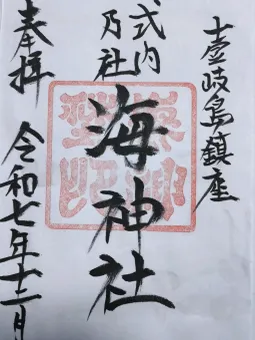 壱岐島鎮座
式内
乃社
海神社
奉拝
令和七年十二月